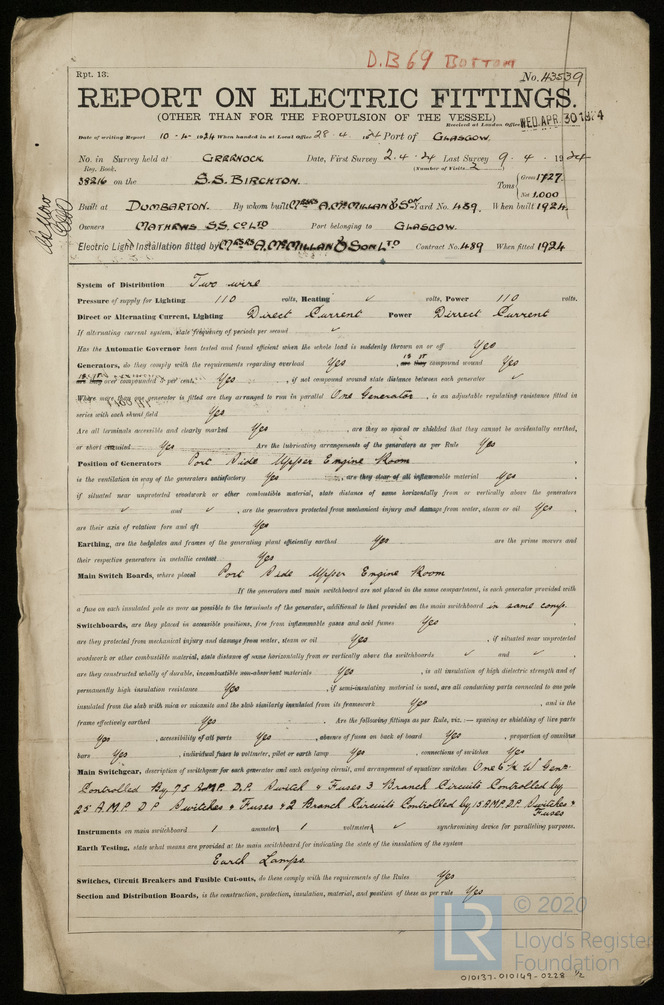 D.B 69 BOTTOM
Rpt. 13.
No. 43539
REPORT ON ELECTRIC FITTINGS.
(OTHER THAN FOR THE PROPULSION OF THE VESSEL)
Received at London Office WED. APR. 30 1924
Date of writing Report 10-4-1924 When handed in at Local Office 28.4.1924 Port of GLASGOW.
No. in Survey held at GREENOCK Date, First Survey 2.4.24 Last Survey 9.4.1924
Reg. Book. (Number of Visits 2
38216 on the S.S. BIRCHTON. Tons { Gross 1727.
Net 1.000
Built at DUMBARTON. By whom built MESSRS A. McMILLAN & SON Yard No. 489. When built 1924.
Owners MATHEWS S.S. CO LTD Port belonging to GLASGOW.
Electric Light Installation fitted by MESSRS A. McMILLAN & SON LTD Contract No. 489 When fitted 1924
System of Distribution Two wire
Pressure of supply for Lighting 110 volts, Heating ✓ volts, Power 110 volts.
Direct or Alternating Current, Lighting Direct Current Power Dirrect Current
If alternating current system, state frequency of periods per second ✓
Has the Automatic Governor been tested and found efficient when the whole load is suddenly thrown on or off Yes
Generators, do they comply with the requirements regarding overload Yes , are they IS IT compound wound Yes
are they IS IT over compounded 5 per cent. Yes , if not compound wound state distance between each generator ✓
Where more than one generator is fitted are they arranged to run in parallel One Generator , is an adjustable regulating resistance fitted in
series with each shunt field Yes
Are all terminals accessible and clearly marked Yes , are they so spaced or shielded that they cannot be accidentally earthed,
or short circuited Yes Are the lubricating arrangements of the generators as per Rule Yes
Position of Generators Port Side Upper Engine Room
is the ventilation in way of the generators satisfactory Yes , are they clear of all inflammable material Yes ,
if situated near unprotected woodwork or other combustible material, state distance of same horizontally from or vertically above the generators
✓ and ✓ , are the generators protected from mechanical injury and damage from water, steam or oil Yes ,
are their axis of rotation fore and aft Yes
Earthing, are the bedplates and frames of the generating plant efficiently earthed Yes are the prime movers and
their respective generators in metallic contact Yes
Main Switch Boards, where placed Port Side Upper Engine Room
If the generators and main switchboard are not placed in the same compartment, is each generator provided with
a fuse on each insulated pole as near as possible to the terminals of the generator, additional to that provided on the main switchboard in same comp.
Switchboards, are they placed in accessible positions, free from inflammable gases and acid fumes Yes ,
are they protected from mechanical injury and damage from water, steam or oil Yes , if situated near unprotected
woodwork or other combustible material, state distance of same horizontally from or vertically above the switchboards ✓ and ✓ ,
are they constructed wholly of durable, incombustible non-absorbent materials Yes , is all insulation of high dielectric strength and of
permanently high insulation resistance Yes , if semi-insulating material is used, are all conducting parts connected to one pole
insulated from the slab with mica or micanite and the slab similarly insulated from its framework Yes , and is the
frame effectively earthed Yes Are the following fittings as per Rule, viz. :— spacing or shielding of live parts
Yes , accessibility of all parts Yes , absence of fuses on back of board Yes , proportion of omnibus
bars Yes , individual fuses to voltmeter, pilot or earth lamp Yes , connections of switches Yes
Main Switchgear, description of switchgear for each generator and each outgoing circuit, and arrangement of equalizer switches One 6 K W Gen:
Controlled By 75 AMP. D.P. Switch & Fuses 3 Branch Circuits Controlled by
25 A.M.P. D.P Switches & Fuses & 2 Branch Circuits Controlled by 15 AMP D.P. Switches &
Fuses
Instruments on main switchboard 1 ammeter 1 voltmeter ✓ synchronizing device for paralleling purposes.
Earth Testing, state what means are provided at the main switchboard for indicating the state of the insulation of the system
Earth Lamps
Switches, Circuit Breakers and Fusible Cut-outs, do these comply with the requirements of the Rules Yes
Section and Distribution Boards, is the construction, protection, insulation, material, and position of these as per rule Yes
LR
© 2020
Lloyd's Register
Foundation
010137-010149-0228 1/2